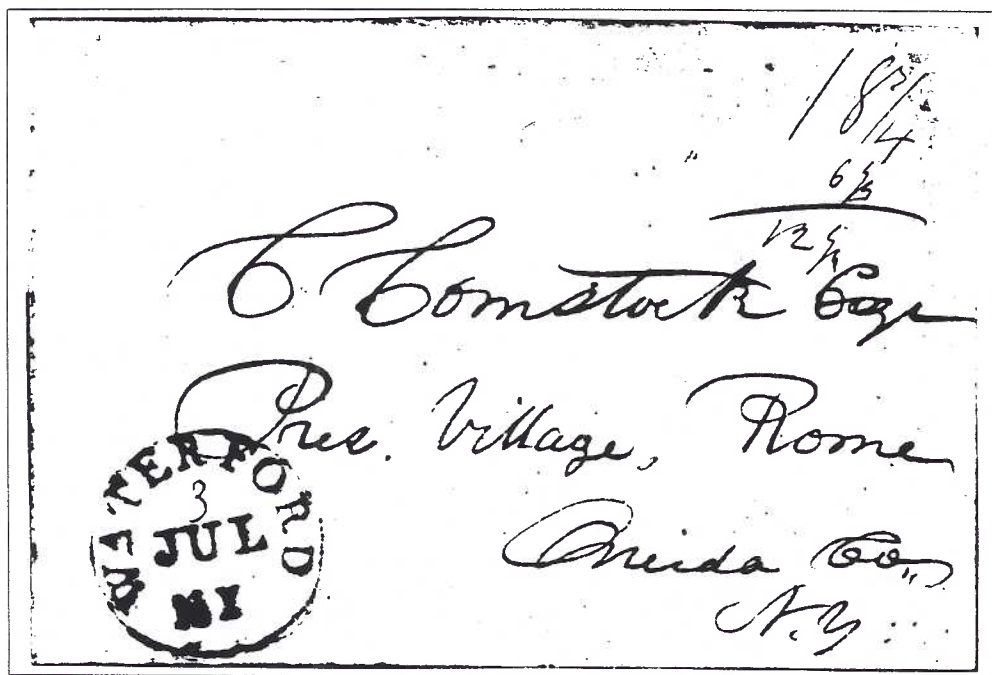 18 3/4
6 1/2
12 1/4
C Comstock Esqr
Pres. Village, Rome
Oneida Co.,
N.Y.
WATERFORD
3
JUL
NY